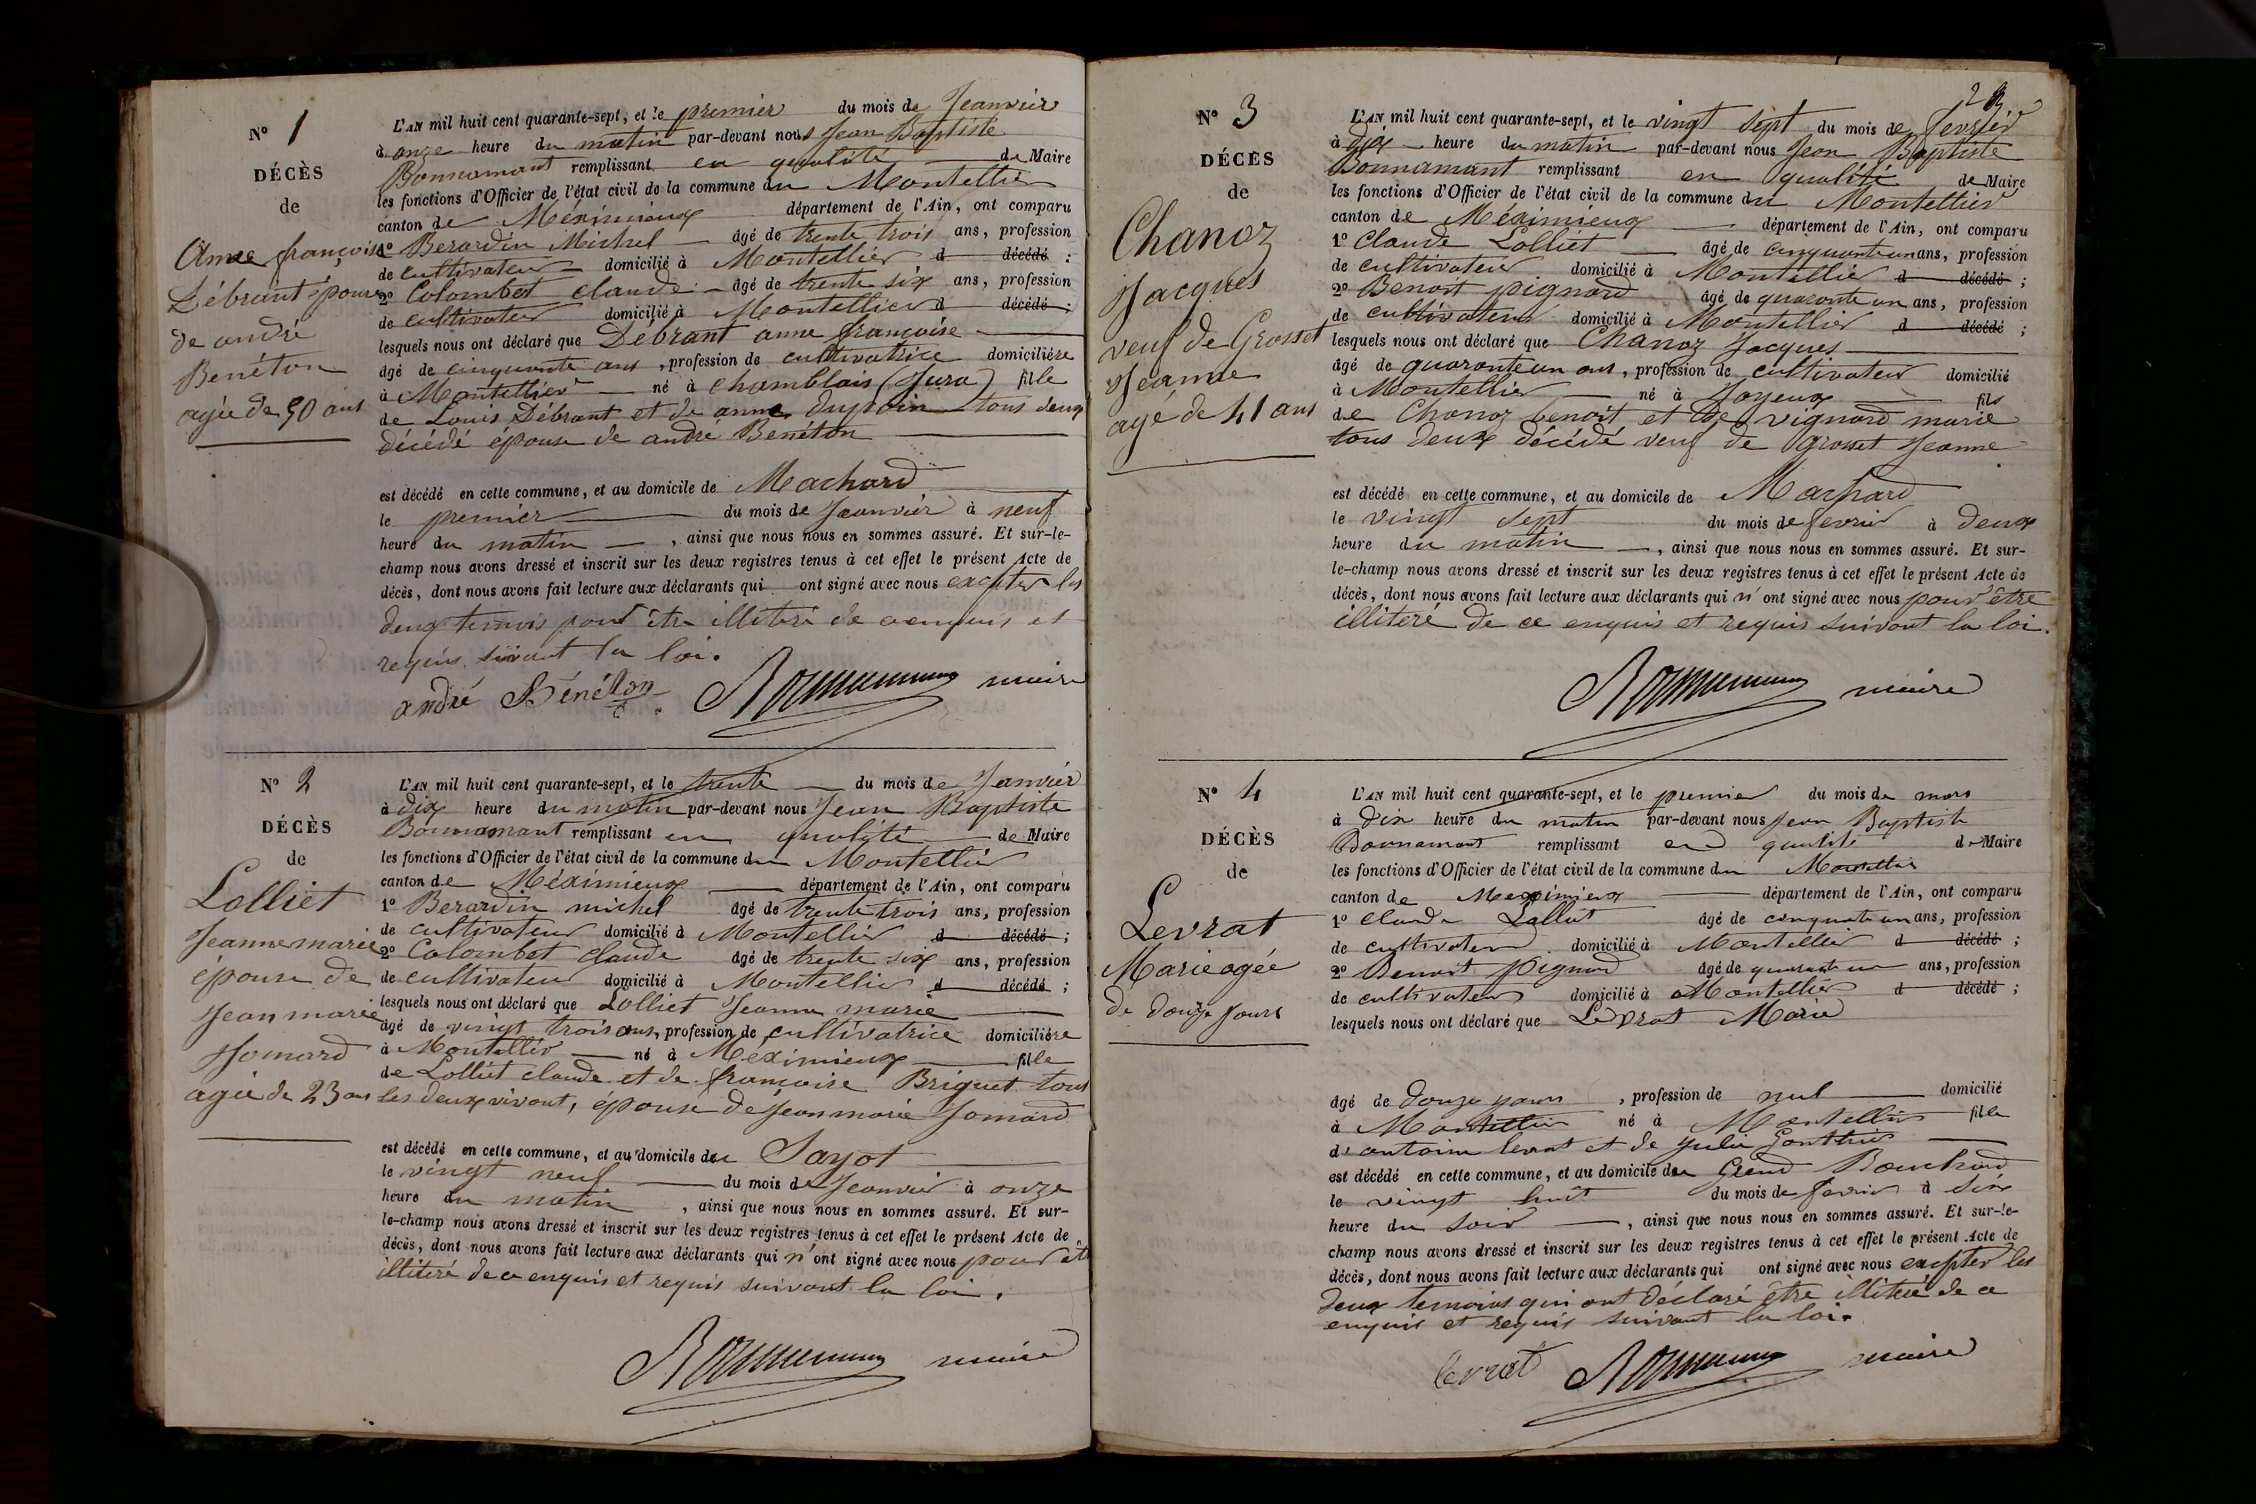 Nº 1
DÉCÈS
de
Anne françoise
Débrant épouse
de andré
Benéton
agée de 50 ans
L'AN mil huit cent quarante-sept, et le premier du mois de Jeanvier
à onze heure du matin par-devant nous Jean Baptiste
Bonnamant remplissant en qualité de Maire
les fonctions d'Officier de l'état civil de la commune du Montellier
canton de Méximieux département de l'Ain, ont comparu
1º Berardin Michel âgé de trente trois ans, profession
de cultivateur domicilié à Montellier d décédé ;
2º Colombet claude âgé de trente six ans, profession
de cultivateur domicilié à Montellier d décédé ;
lesquels nous ont déclaré que Débrant anne françoise
âgé de cinquante ans, profession de cultivatrice domiciliére
à Montellier né à chamblais (Jura) fille
de Louis Débrant et de anne tous deux
décédé épouse de andré Benéton
est décédé en cette commune, et au domicile de Machard
le premier du mois de Jeanvier à neuf
heure du matin, ainsi que nous nous en sommes assuré. Et sur-le-
champ nous avons dressé et inscrit sur les deux registres tenus à cet effet le présent Acte de
décès, dont nous avons fait lecture aux déclarants qui ont signé avec nous excepter les
deux temois pour être illitéré de ce enquis et
requis suivant la loi.
andré Bénéton Bonnamant maire
Nº 2
DÉCÈS
de
Lolliet
Jeanne marie
épouse de
Jean marie
Jomard
agée de 23 ans
L'AN mil huit cent quarante-sept, et le trente du mois de Janvier
à dix heure du matin par-devant nous Jean Baptiste
Bonnamant remplissant en qualité de Maire
les fonctions d'Officier de l'état civil de la commune du Montellier
canton de Méximieux département de l'Ain, ont comparu
1º Berardin michel âgé de trente trois ans, profession
de cultivateur domicilié à Montellier d décédé ;
2º Colombet claude âgé de trente six ans, profession
de cultivateur domicilié à Montellier d décédé ;
lesquels nous ont déclaré que Lolliet Jeanne marie
âgé de vingt trois ans, profession de cultivatrice domiciliére
à Montellier né à Méximieux fille
de Lolliet claude et de françoise Briguet tous
les deux vivant, épouse de Jean marie Jomard
est décédé en cette commune, et au domicile du Sayot
le vingt neuf du mois de Jeanvier à onze
heure du matin, ainsi que nous nous en sommes assuré. Et sur-
le-champ nous avons dressé et inscrit sur les deux registres tenus à cet effet le présent Acte de
décès, dont nous avons fait lecture aux déclarants qui n'ont signé avec nous pour être
illitéré de ce enquis et requis suivant la loi.
Bonnamant maire
2
Nº 3
DÉCÈS
de
Chanoz
Jacques
veuf de Grosset
Jeanne
agé de 41 ans
L'AN mil huit cent quarante-sept, et le vingt sept du mois de fevrier
à dix heure du matin par-devant nous Jean Baptiste
Bonnamant remplissant en qualité de Maire
les fonctions d'Officier de l'état civil de la commune du Montellier
canton de Méximieux département de l'Ain, ont comparu
1º Claude Lolliet âgé de cinquante un ans, profession
de cultivateur domicilié à Montellier d décédé ;
2º Benoit pignard âgé de quarante un ans, profession
de cultivateur domicilié à Montellier d décédé ;
lesquels nous ont déclaré que Chanoz Jacques
âgé de quarante un ans, profession de cultivateur domicilié
à Montellier né à Joyeux fils
de Chanoz benoit et de vignard marie
tous deux décédé veuf de Grosset Jeanne
est décédé en cette commune, et au domicile de Machard
le vingt sept du mois de fevrier à deux
heure du matin, ainsi que nous nous en sommes assuré. Et sur-
le-champ nous avons dressé et inscrit sur les deux registres tenus à cet effet le présent Acte de
décès, dont nous avons fait lecture aux déclarants qui n'ont signé avec nous pour être
illitéré de ce enquis et requis suivant la loi.
Bonnamant maire
Nº 4
DÉCÈS
de
Levrat
Marie agée
de douze jours
L'AN mil huit cent quarante-sept, et le premier du mois de mars
à dix heure du matin par-devant nous Jean Baptiste
Bonnamant remplissant en qualité de Maire
les fonctions d'Officier de l'état civil de la commune du Montellier
canton de Meximieux département de l'Ain, ont comparu
1º claude Lolliet âgé de cinquante un ans, profession
de cultivateur domicilié à Montellier d décédé ;
2º Benoit Pignard âgé de quarante un ans, profession
de cultivateur domicilié à Montellier d décédé ;
lesquels nous ont déclaré que Levrat Marie
âgé de douze jours, profession de nul domicilié
à Montellier né à Montellier fille
d'antoine levrat et de julie Gonthier
est décédé en cette commune, et au domicile du Grand Bouchard
le vingt huit du mois de fevrier à six
heure du soir, ainsi que nous nous en sommes assuré. Et sur-le-
champ nous avons dressé et inscrit sur les deux registres tenus à cet effet le présent Acte de
décès, dont nous avons fait lecture aux déclarants qui ont signé avec nous excepter les
deux temoins qui ont déclaré être illitéré de ce
enquis et requis suivant la loi.
levrat Bonnamant maire